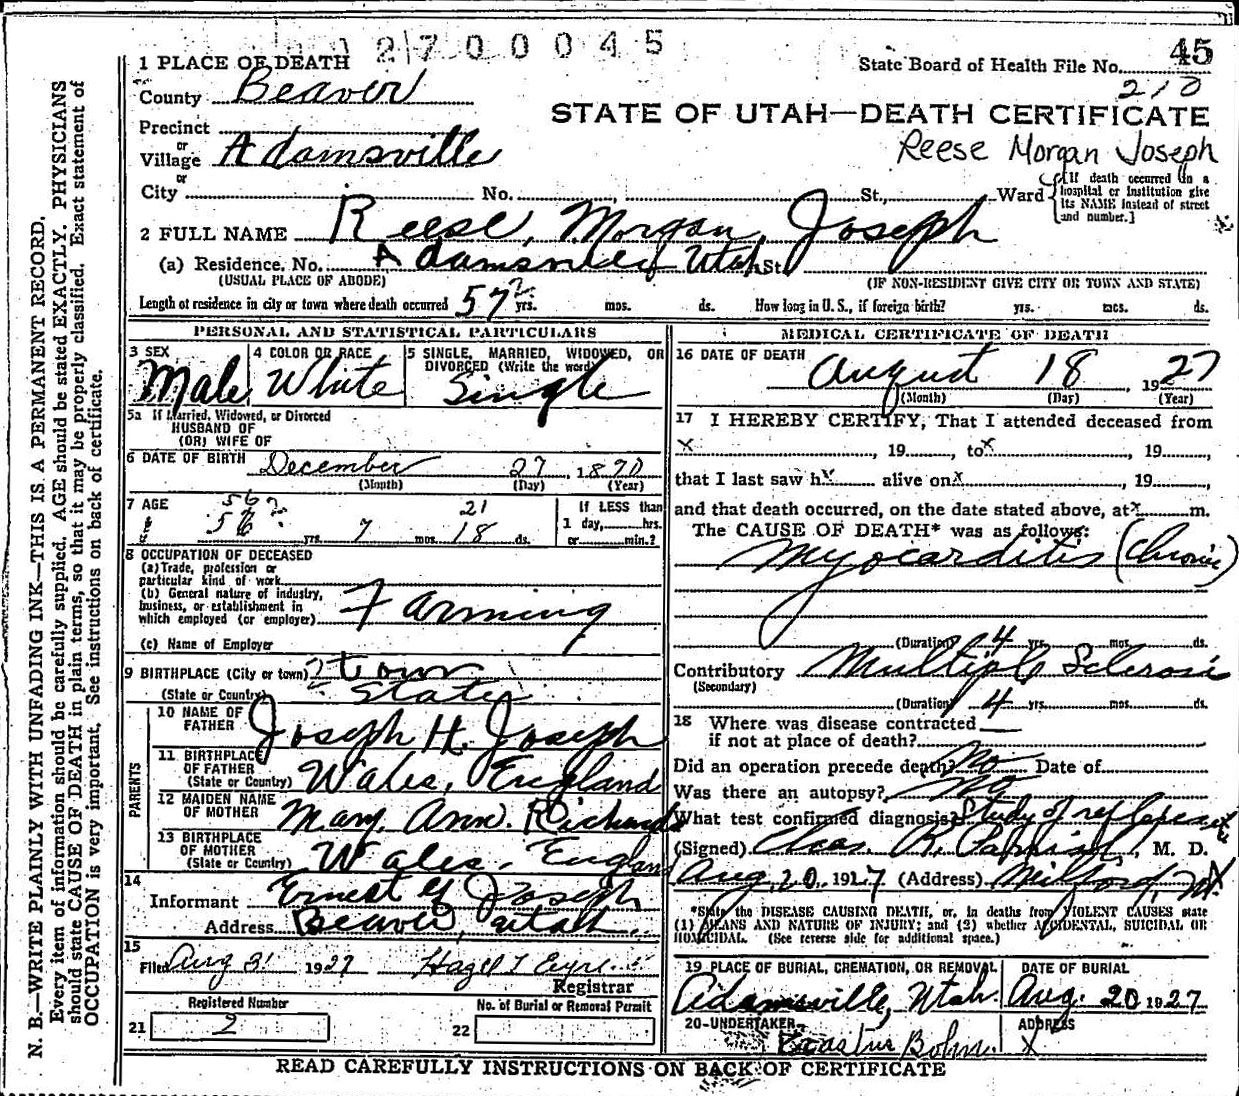 12700045
45
1 PLACE OF DEATH
State Board of Health File No.
210
County Beaver
STATE OF UTAH—DEATH CERTIFICATE
Precinct
or
Village Adamsville
Reese Morgan Joseph
or
City No. St., Ward
[If death occurred in a hospital or institution give its NAME instead of street and number.]
2 FULL NAME Reese, Morgan, Joseph
(a) Residence, No. Adamsville Utah St.
(USUAL PLACE OF ABODE) (IF NON-RESIDENT GIVE CITY OR TOWN AND STATE)
Length of residence in city or town where death occurred 57 ? yrs. mos. ds. How long in U. S., if foreign birth? yrs. mos. ds.
PERSONAL AND STATISTICAL PARTICULARS
3 SEX Male
4 COLOR OR RACE White
5 SINGLE, MARRIED, WIDOWED, OR DIVORCED (Write the word) Single
5a If Married, Widowed, or Divorced
HUSBAND OF
(OR) WIFE OF
6 DATE OF BIRTH December 27, 1870
(Month) (Day) (Year)
7 AGE 56 ? 21
56 yrs. 7 mos. 18 ds.
If LESS than
1 day, hrs.
or min.?
8 OCCUPATION OF DECEASED
(a) Trade, profession or
particular kind of work
(b) General nature of industry,
business, or establishment in
which employed (or employer) Farming
(c) Name of Employer
9 BIRTHPLACE (City or town) ? town
(State or Country) State
PARENTS
10 NAME OF FATHER Joseph H. Joseph
11 BIRTHPLACE OF FATHER
(State or Country) Wales, England
12 MAIDEN NAME OF MOTHER Mary. Ann. Richards
13 BIRTHPLACE OF MOTHER
(State or Country) Wales, England
14
Informant Ernest Joseph
Address Beaver, Utah.
15
Filed Aug 31 1927 Hazel T Eyre
Registrar
Registered Number
21 2
No. of Burial or Removal Permit
22
MEDICAL CERTIFICATE OF DEATH
16 DATE OF DEATH August 18, 1927
(Month) (Day) (Year)
17 I HEREBY CERTIFY, That I attended deceased from
x , 19 , to x , 19 ,
that I last saw h x alive on x , 19 ,
and that death occurred, on the date stated above, at x m.
The CAUSE OF DEATH* was as follows:
Myocarditis (Chronic)
(Duration) 4 yrs. mos. ds.
Contributory Multiple Sclerosis
(Secondary)
(Duration) 4 yrs. mos. ds.
18 Where was disease contracted
if not at place of death?
Did an operation precede death? No Date of
Was there an autopsy? No
What test confirmed diagnosis? Study of reflexes etc
(Signed) Chas. R. Parrish, M. D.
Aug. 20, 1927 (Address) Milford, Ut
*State the DISEASE CAUSING DEATH, or, in deaths from VIOLENT CAUSES state
(1) MEANS AND NATURE OF INJURY; and (2) whether ACCIDENTAL, SUICIDAL OR
HOMICIDAL. (See reverse side for additional space.)
19 PLACE OF BURIAL, CREMATION, OR REMOVAL
Adamsville, Utah.
DATE OF BURIAL
Aug. 20 1927
20-UNDERTAKER
ADDRESS
x
READ CAREFULLY INSTRUCTIONS ON BACK OF CERTIFICATE
N. B.—WRITE PLAINLY WITH UNFADING INK—THIS IS A PERMANENT RECORD.
Every item of information should be carefully supplied. AGE should be stated EXACTLY. PHYSICIANS
should state CAUSE OF DEATH in plain terms, so that it may be properly classified. Exact statement of
OCCUPATION is very important. See instructions on back of certificate.